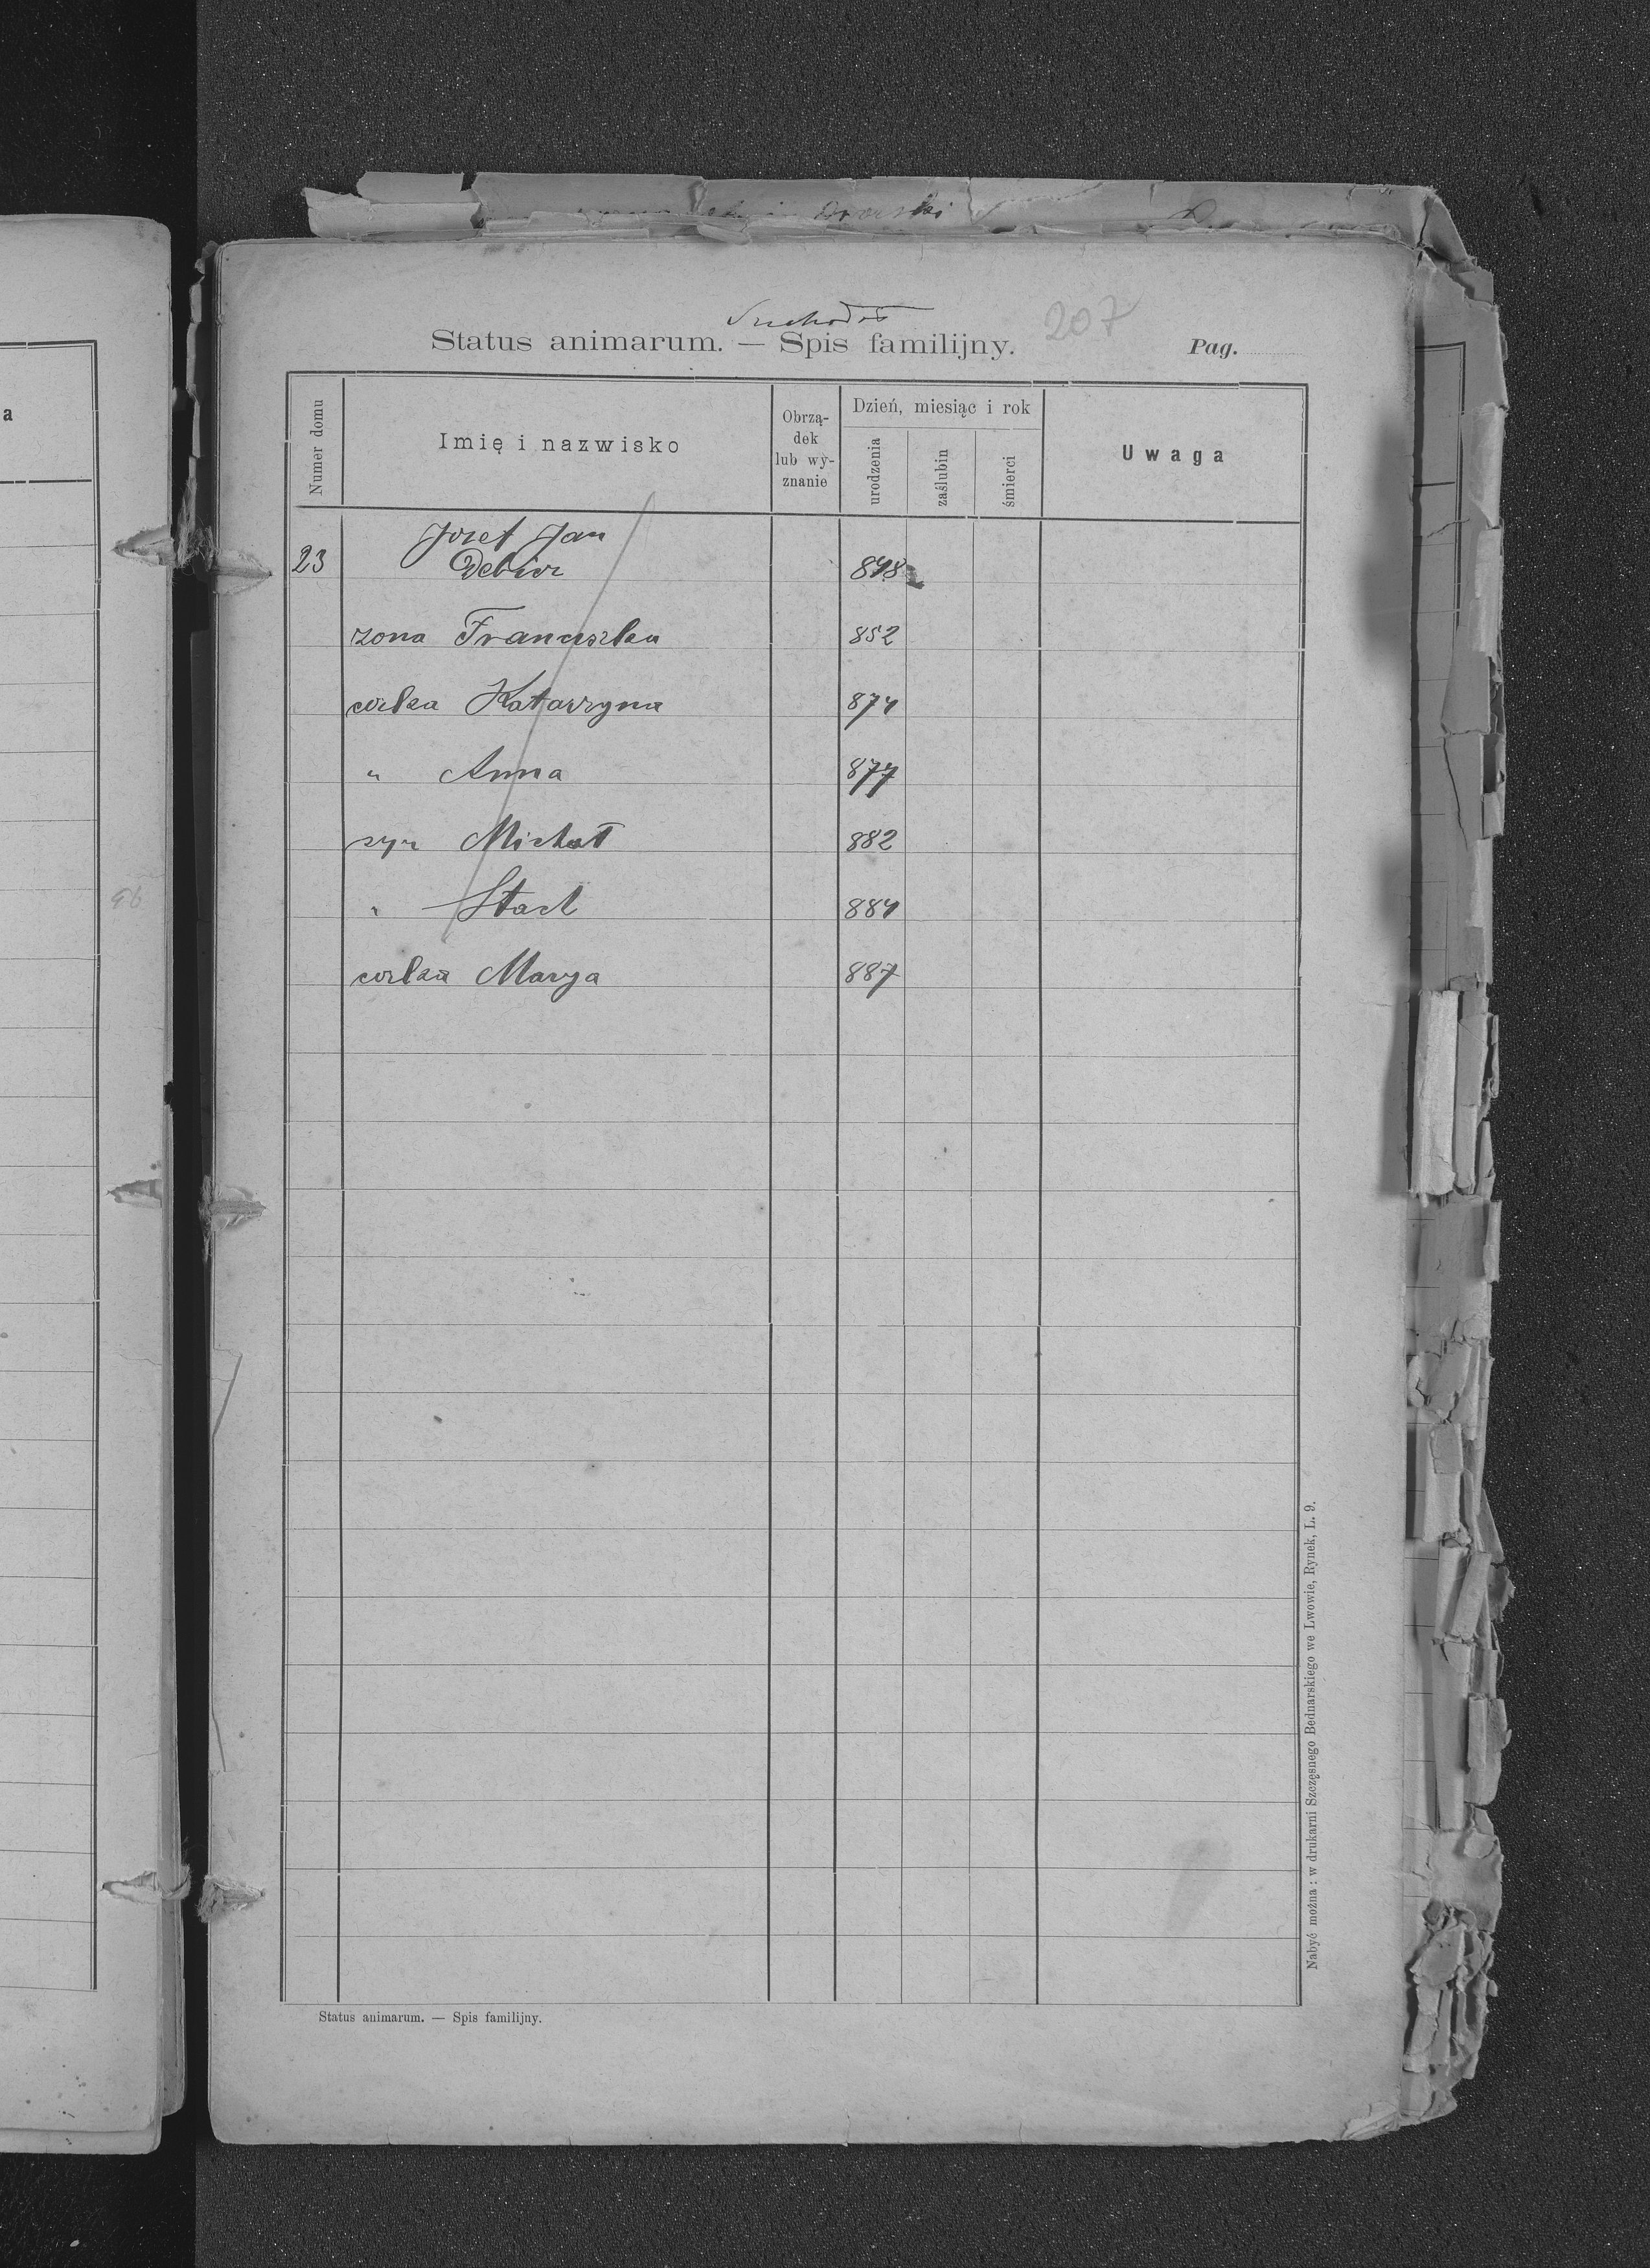 Dworski
Suchodół
207
Status animarum. — Spis familijny. Pag.
Numer domu
Imię i nazwisko
Obrzą-
dek
lub wy-
znanie
Dzień, miesiąc i rok
urodzenia
zaślubin
śmierci
Uwaga
a
Józef Jan
23 Debicr 848
zona Franciszka 852
corka Katarzyna 874
" Anna 877
syn Michał 882
" Stach 884
96
corka Marya 887
Nabyć można: w drukarni Szczęsnego Bednarskiego we Lwowie, Rynek, L. 9.
Status animarum. — Spis familijny.